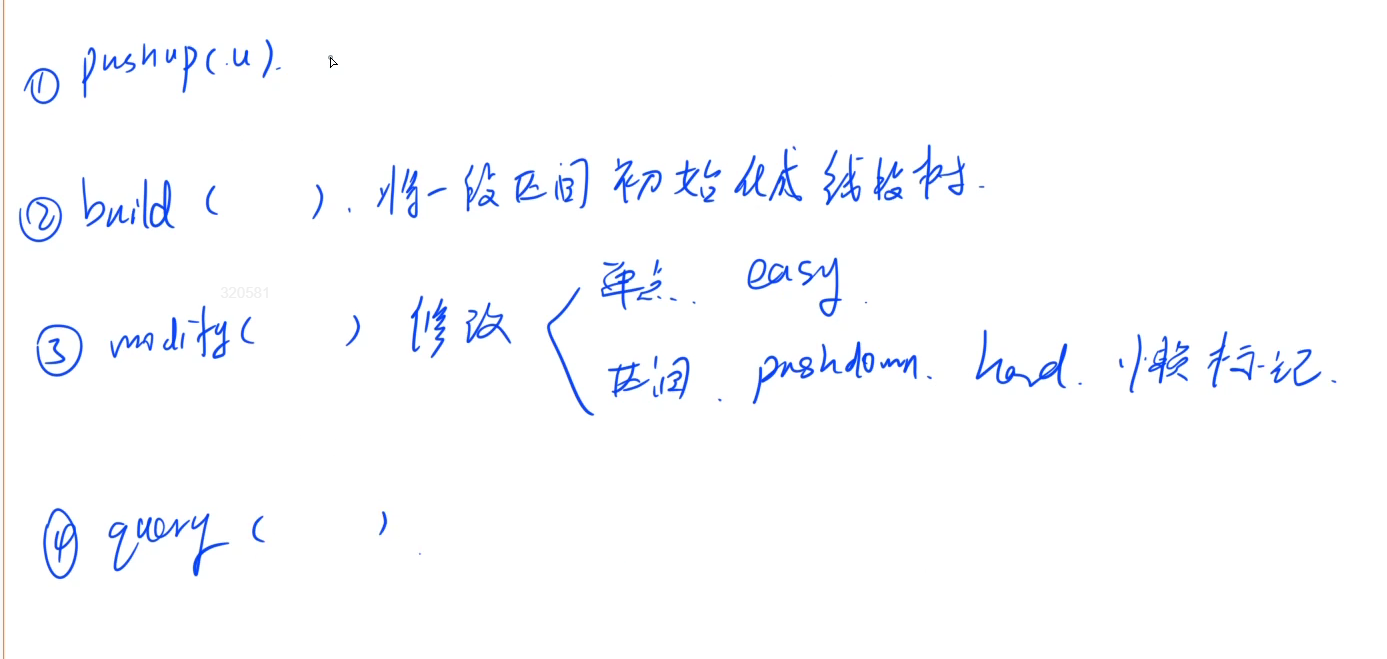 ① pushup(u).
② build ( ). 将一段区间初始化成线段树.
320581
③ modify( ) 修改 单点. easy.
区间. pushdown. hard. 懒标记.
④ query ( )